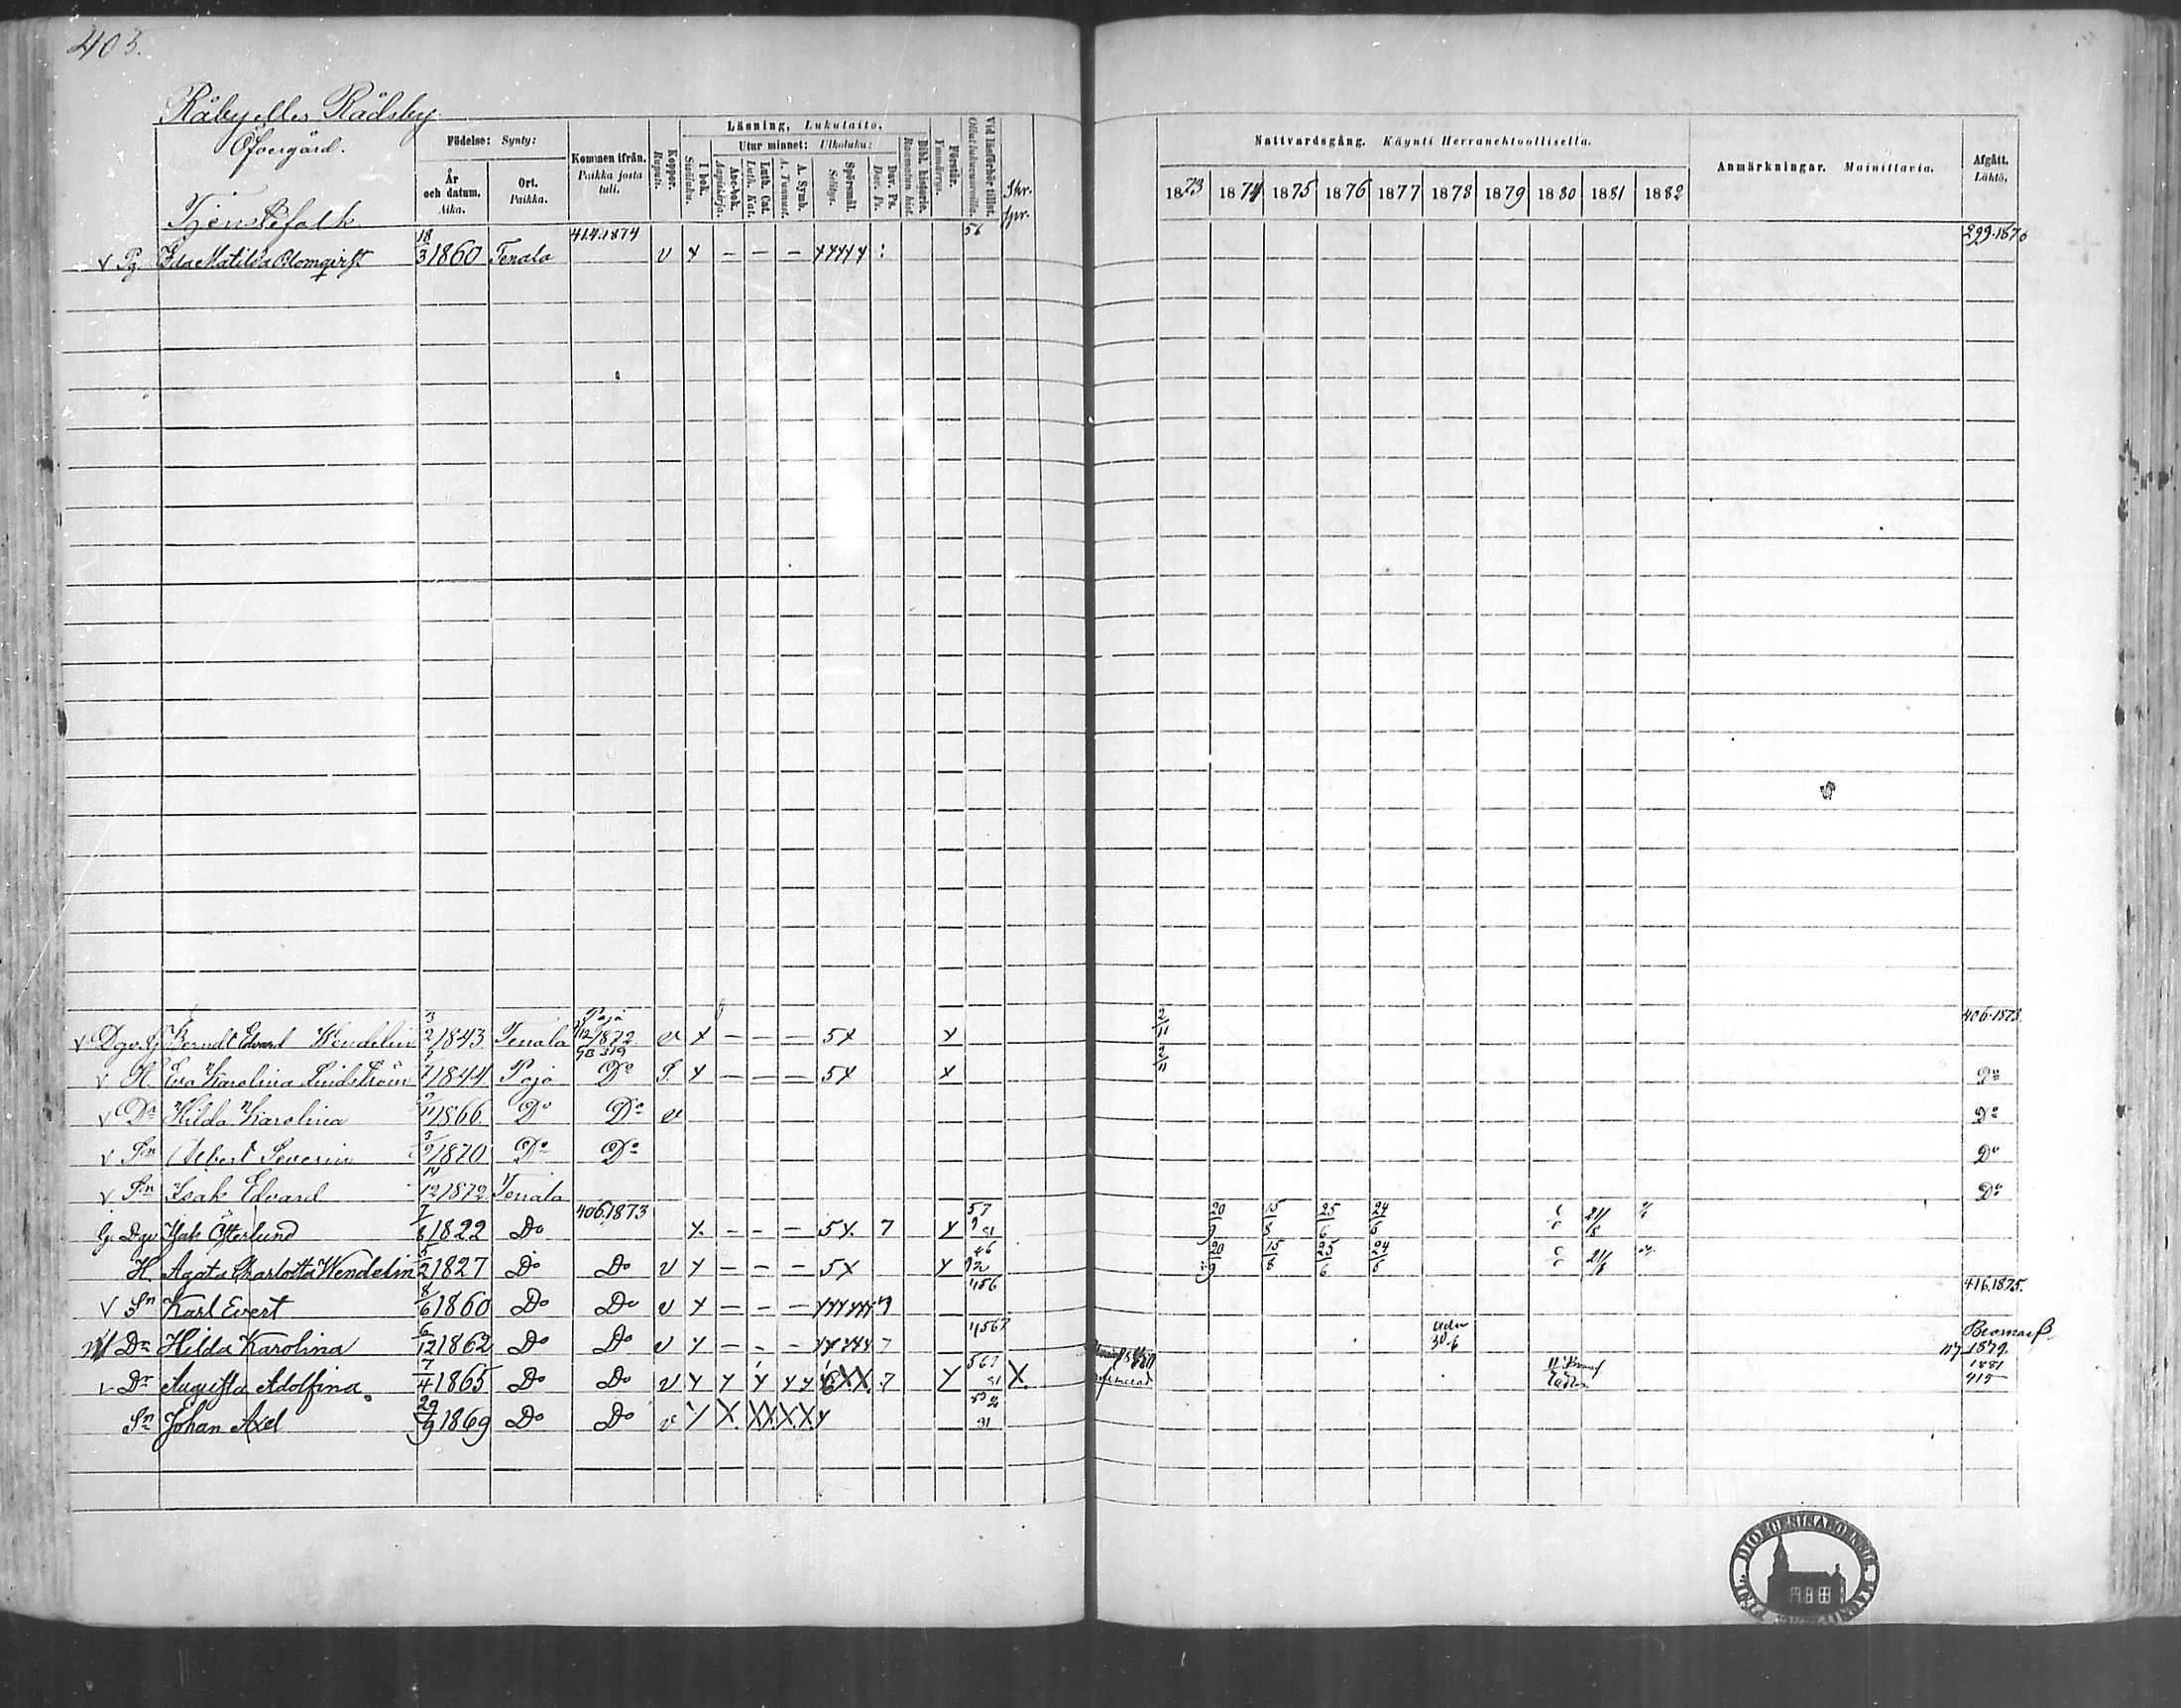 403.
Råby eller Rådsby
Öfvergård.
Tjenstefolk
Födelse: Synty:
År och datum. Aika.
Ort. Paikka.
Kommen ifrån. Paikka josta tuli.
Koppor. Rupuli.
Läsning, Lukutaito,
I bok. Sisäluku.
Utur minnet: Ulkoluku:
Abc-bok. Aapiskirja.
Luth. Cat. Luth. Kat.
A. Symb. A. Tunnust.
Spörsmål. Selitys.
Dav. Ps. Dav. Ps.
Bibl. historie. Raamatun hist.
Förstår. Ymmärrys.
Vid läsförhör tillst. Ollut lukuvuorolla.
Skr. spr.
Nattvardsgång. Käynti Herranehtoollisella.
1873 1874 1875 1876 1877 1878 1879 1880 1881 1882
Anmärkningar. Mainittavia.
Afgått. Lähtö.
v Pg. Ida Matilda Blomqvist 18/3 1860 Tenala 414.1874 v x – – – 56 299.1876
v Berndt Edvard Wendelin 3/2 1843. Tenala Pojo 1872 GB 319 v x – – – 5x x 2/11 406.1873.
v H. Eva Karolina Lindström 1844 Pojo Do x – – – 5x x 2/11 Do
v Dr Hilda Karolina 1866. Do Do v Do
v Sn Albert Severin 3/9 1870 Do Do Do
v Sn Isak Edvard 14/12 1872 Tenala Do
Isak Österlund 7/6 1822 Do 406.1873 x – – – 5x. 7 x 57 20/9 15/8 25/6 24/6 21/8
H. Agata Charlotta Wendelin 5/2 1827 Do Do v x – – – 5x 46 20/9 15/8 25/6 24/6 21/8
v Sn Karl Evert 8/6 1860 Do Do v x – – – 416.1875.
Dr Hilda Karolina 6/12 1862 Do Do v x – – – 7 567 30/6 Bromarf 1879.
v Dr Augusta Adolfina 7/4 1865 Do Do v 7 567 X. 1881 415
Sn Johan Axel 29/9 1869 Do Do v 31